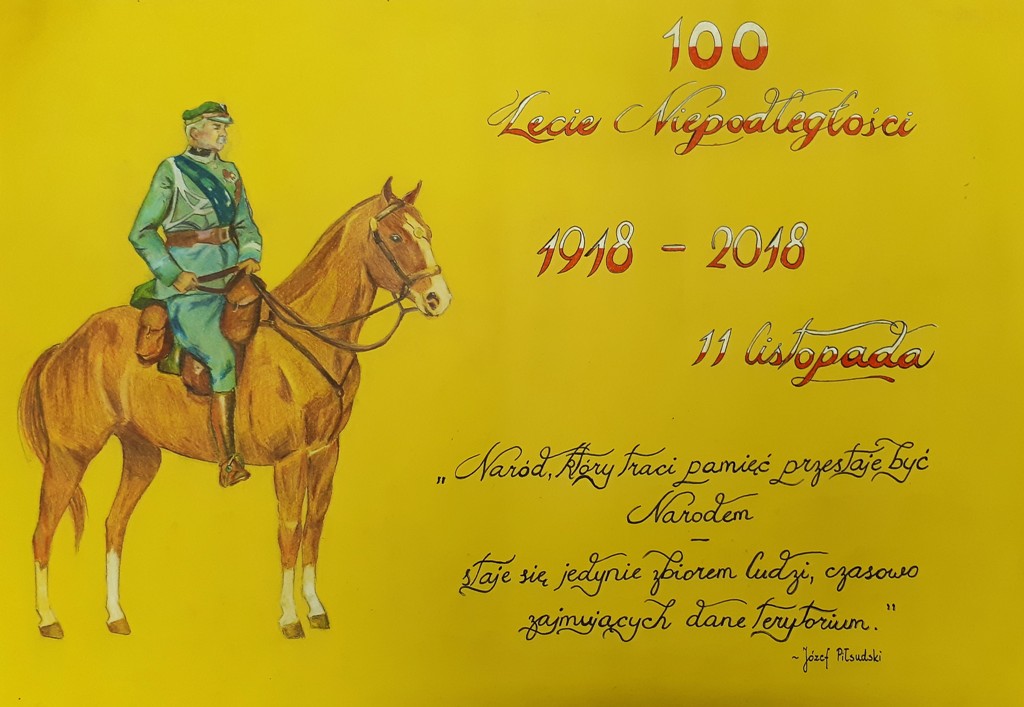 100
Lecie Niepodległości
1918 - 2018
11 listopada
„Naród, który traci pamięć przestaje być
Narodem
–
staje się jedynie zbiorem ludzi, czasowo
zajmujących dane terytorium."
~ Józef Piłsudski